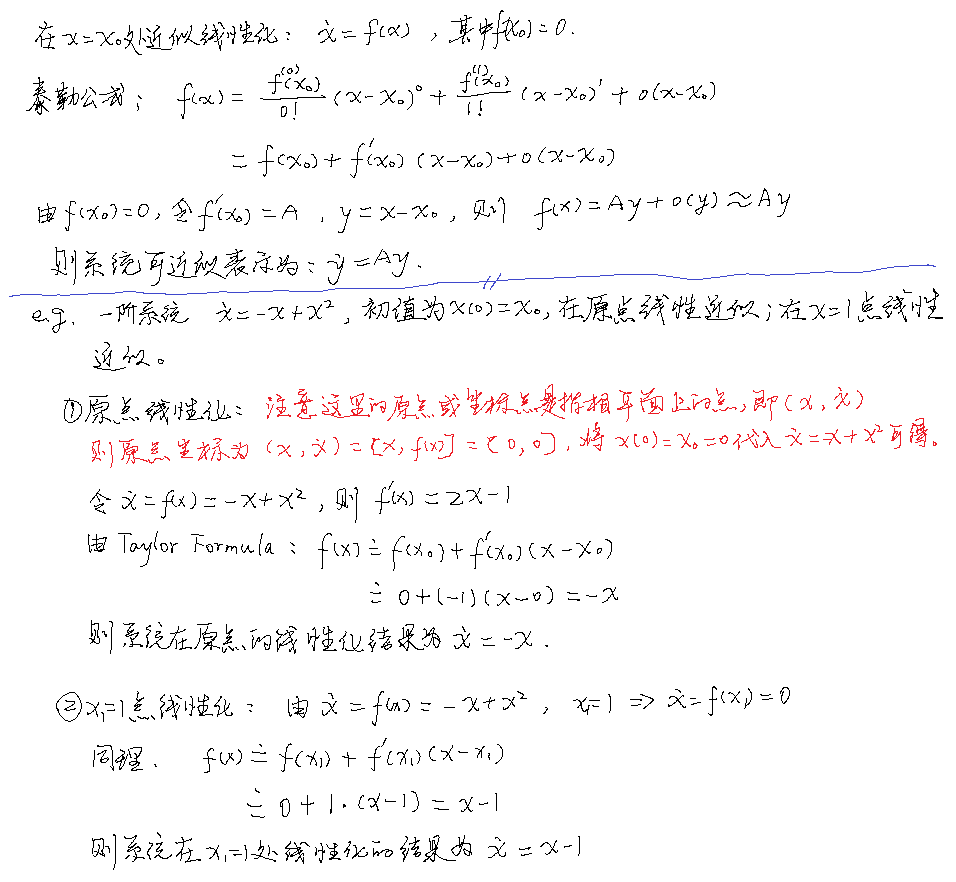 在x=x₀处近似线性化： ẋ=f(x) ，其中f(x₀)=0.
泰勒公式； f(x) = \frac{f^{(0)}(x₀)}{0!} (x-x₀)⁰ + \frac{f^{(1)}(x₀)}{1!} (x-x₀)¹ + o(x-x₀)
= f(x₀) + f'(x₀) (x-x₀) + o(x-x₀)
由f(x₀)=0, 令f'(x₀) = A , y=x-x₀ , 则 f(x) = Ay + o(y) ≈ Ay
则系统可近似表示为：ẏ=Ay.
e.g. 一阶系统 ẋ=-x+x², 初值为x(0)=x₀, 在原点线性近似；在x=1点线性
近似。
①原点线性化： 注意这里的原点或坐标点是指相平面上的点，即(x, ẋ)
则原点坐标为 (x, ẋ) = [x, f(x)] = [0, 0], 将 x(0)=x₀=0代入 ẋ=-x+x²可得。
令 ẋ=f(x)=-x+x² , 则 f'(x) = 2x-1
由Taylor Formula： f(x) ≐ f(x₀) + f'(x₀) (x-x₀)
≐ 0+(-1)(x-0) = -x
则系统在原点的线性化结果为 ẋ=-x .
②x₁=1点线性化： 由 ẋ=f(x) = -x+x² , x₁=1 => ẋ=f(x₁)=0
同理. f(x) ≐ f(x₁) + f'(x₁) (x-x₁)
≐ 0 + 1·(x-1) = x-1
则系统在x₁=1处线性化的结果为 ẋ=x-1